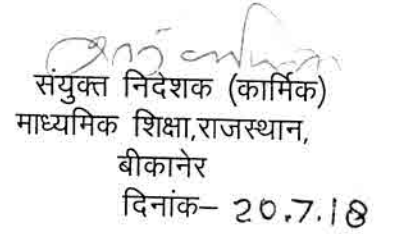 संयुक्त निदेशक (कार्मिक)
माध्यमिक शिक्षा,राजस्थान,
बीकानेर
दिनांक– 20.7.18